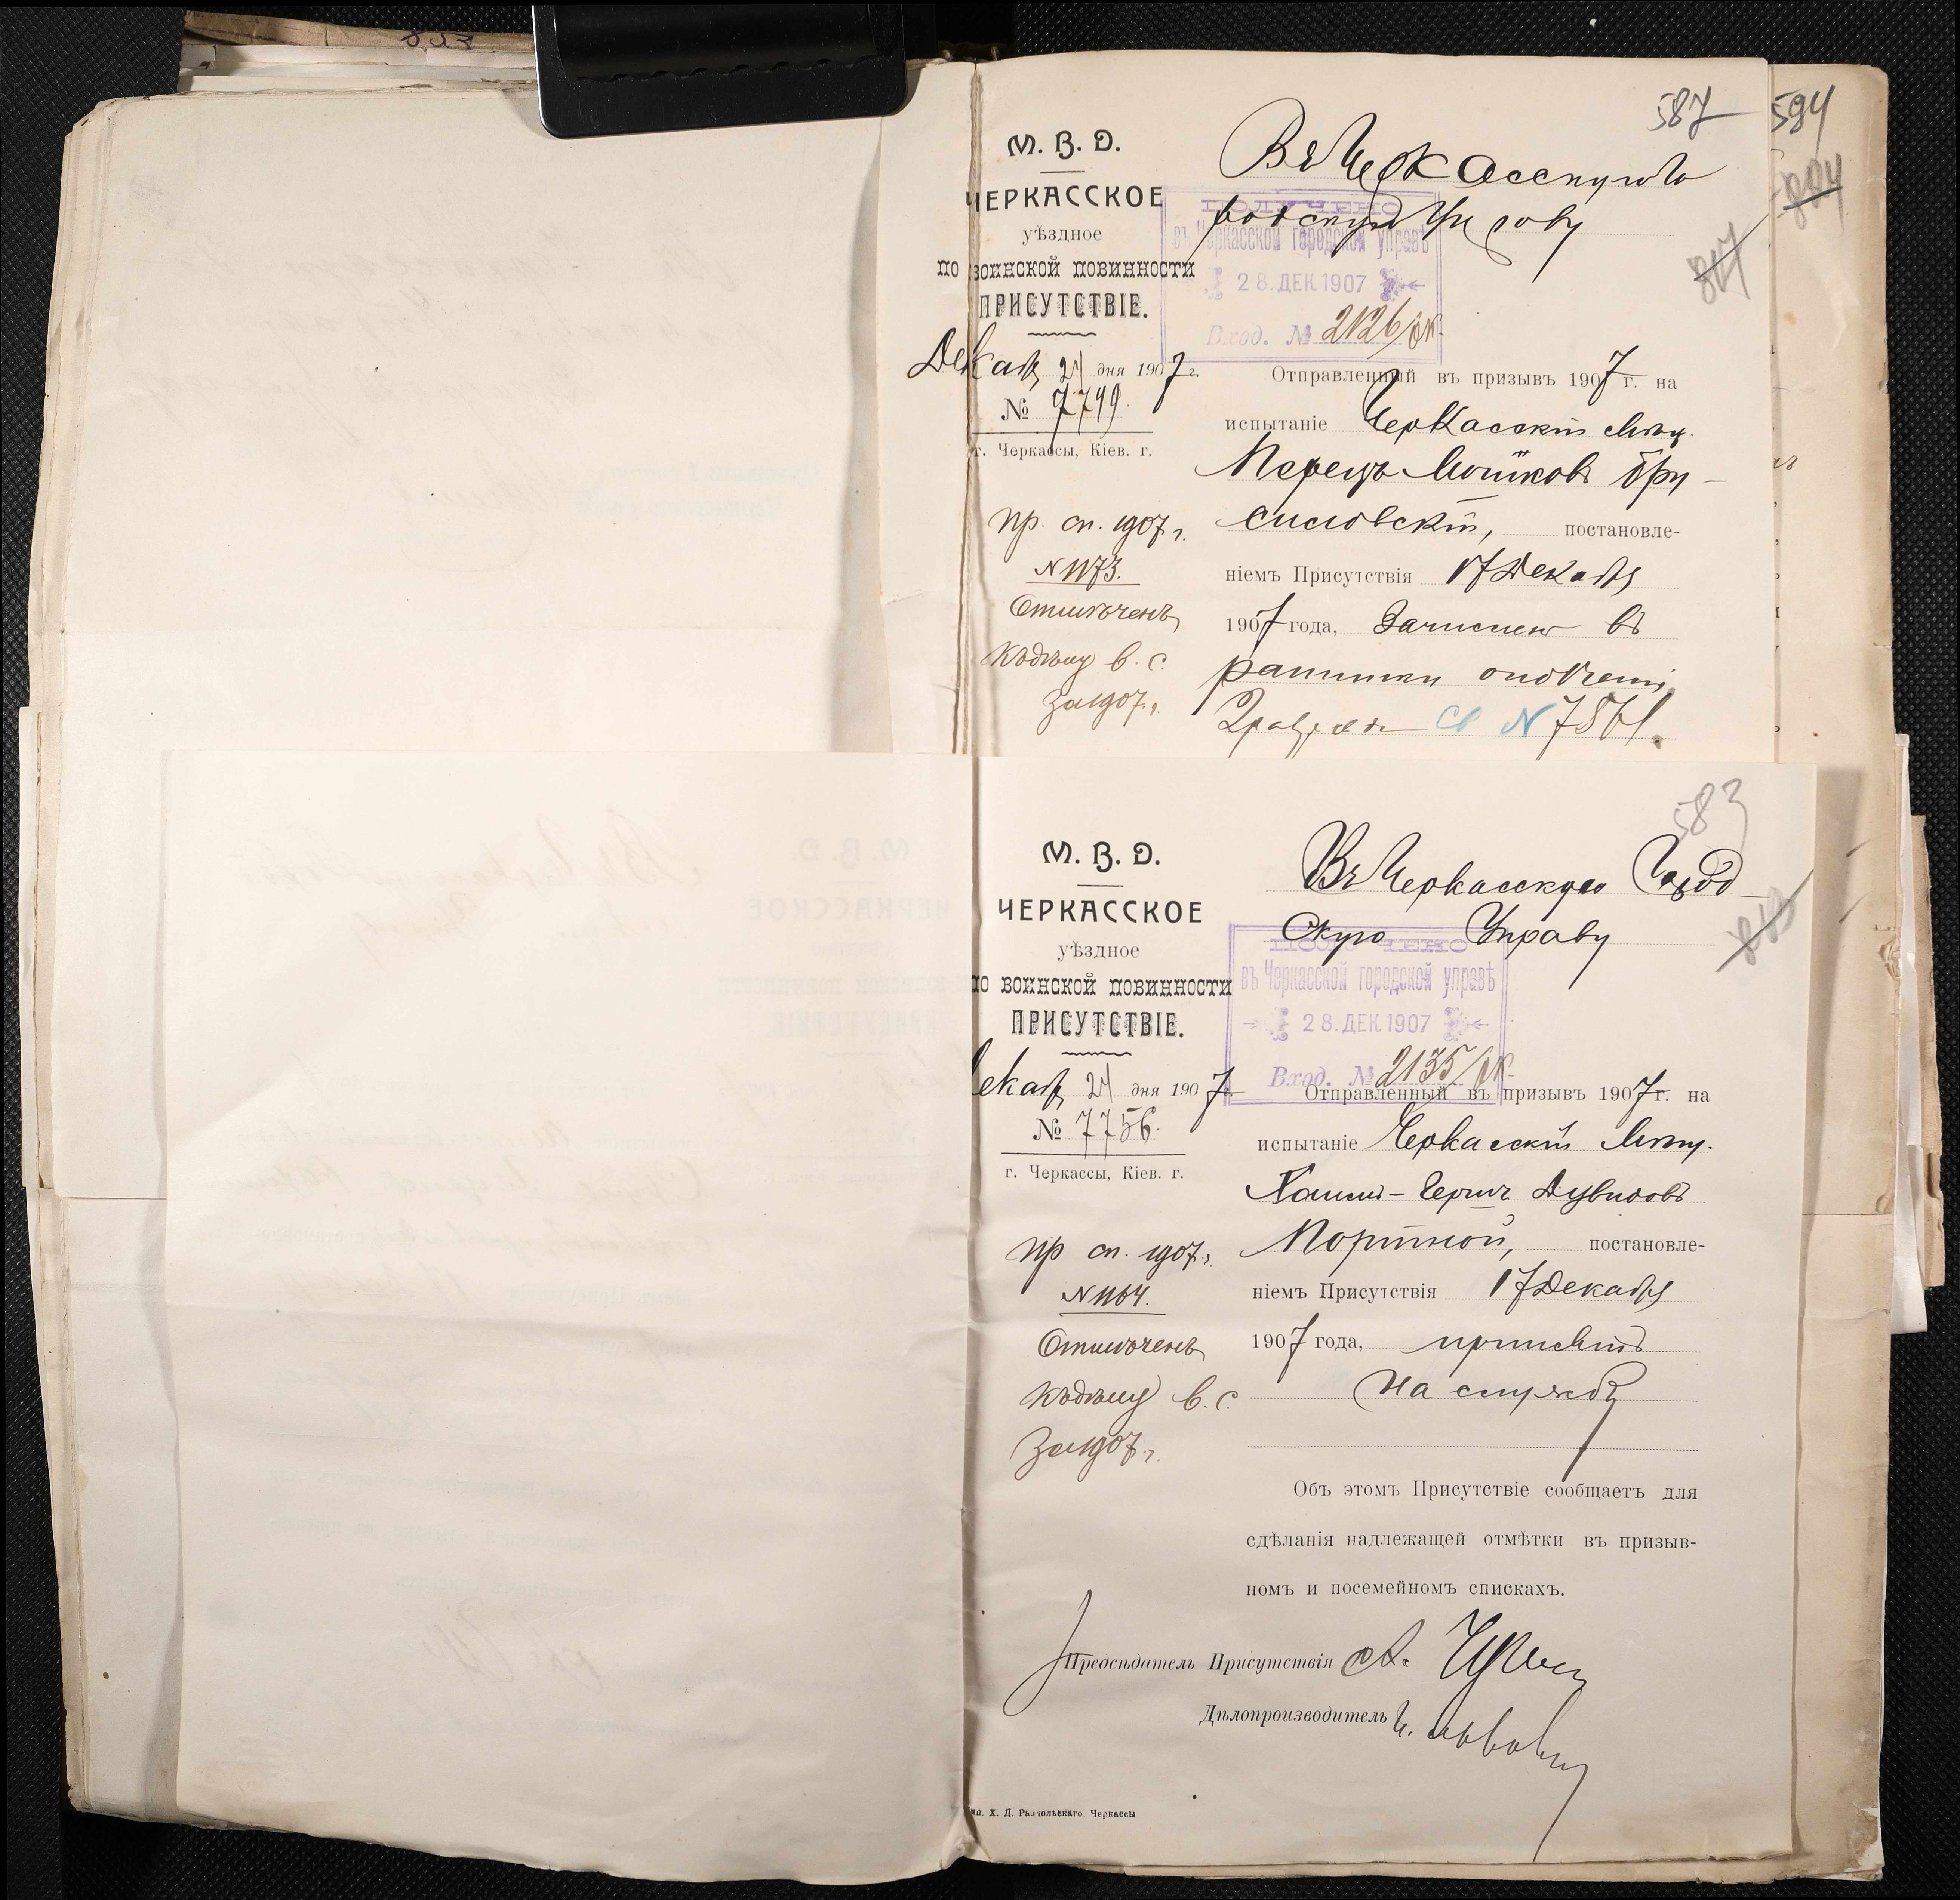 587
594
804
817
М. В. Д.
ЧЕРКАССКОЕ
уѣздное
по воинской повинности
ПРИСУТСТВІЕ.
Декабр 21 дня 1907 г.
№ 7799.
г. Черкассы, Кіев. г.
Пр. сп. 1907 г.
N 1173.
Отмѣченъ
за 1907 г.
Въ Черкасскую Го
родскую Управу
ПОЛУЧЕНО
въ Черкасской городской управѣ
28. ДЕК. 1907
Вход. № 2126/
Отправленный въ призывъ 1907 г. на
испытаніе Черкасскій Мѣщ.
Перецъ Мошковъ Бру-
силовскій, постановле-
ніемъ Присутствія 17 Декабря
1907 года, Зачисленъ въ
ратники ополченія
2 разряда Св N 7561.
583
813
М. В. Д.
ЧЕРКАССКОЕ
уѣздное
по воинской повинности
ПРИСУТСТВІЕ.
екабр 21 дня 1907 г.
№ 7756.
г. Черкассы, Кіев. г.
Пр сп. 1907 г.
N 1164.
Отмѣченъ
за 1907 г.
Въ Черкасскую Город
скую Управу
ПОЛУЧЕНО
въ Черкасской городской управѣ
28. ДЕК. 1907
Вход. № 2135/
Отправленный въ призывъ 1907 г. на
испытаніе Черкасскій Мѣщ.
Хаимъ-Гершъ Дувидовъ
Портной, постановле-
ніемъ Присутствія 17 Декабря
1907 года, принятъ
на службу
Объ этомъ Присутствіе сообщаетъ для
сдѣланія надлежащей отмѣтки въ призыв-
номъ и посемейномъ спискахъ.
Предсѣдатель Присутствія
Дѣлопроизводитель
Х. Д. Черкассы